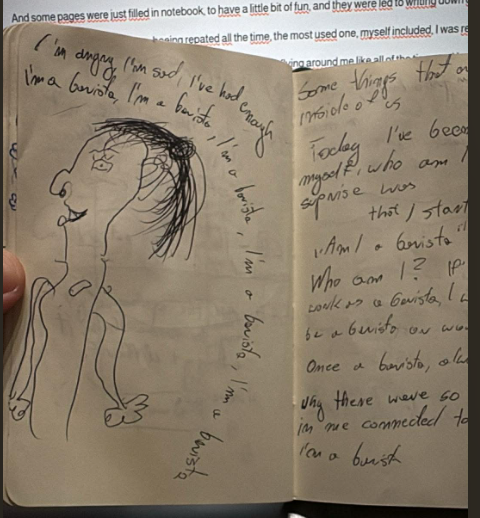 And some pages were just filled in notebook, to have a little bit of fun, and they were led to writing down
repated all the time, the most used one, myself included, I was re
around me like all of the
I'm angry, I'm sad, I've had enough
I'm a barista, I'm a barista, I'm a barista, I'm a barista, I'm a barista
Some things that
inside of us
Today I've been
myself, who am I
suprise was
that I start
"Am I a barista"
Who am I? If
work as a barista, I
be a barista
Once a barista,
why there were so
in me connected to
I'm a barista